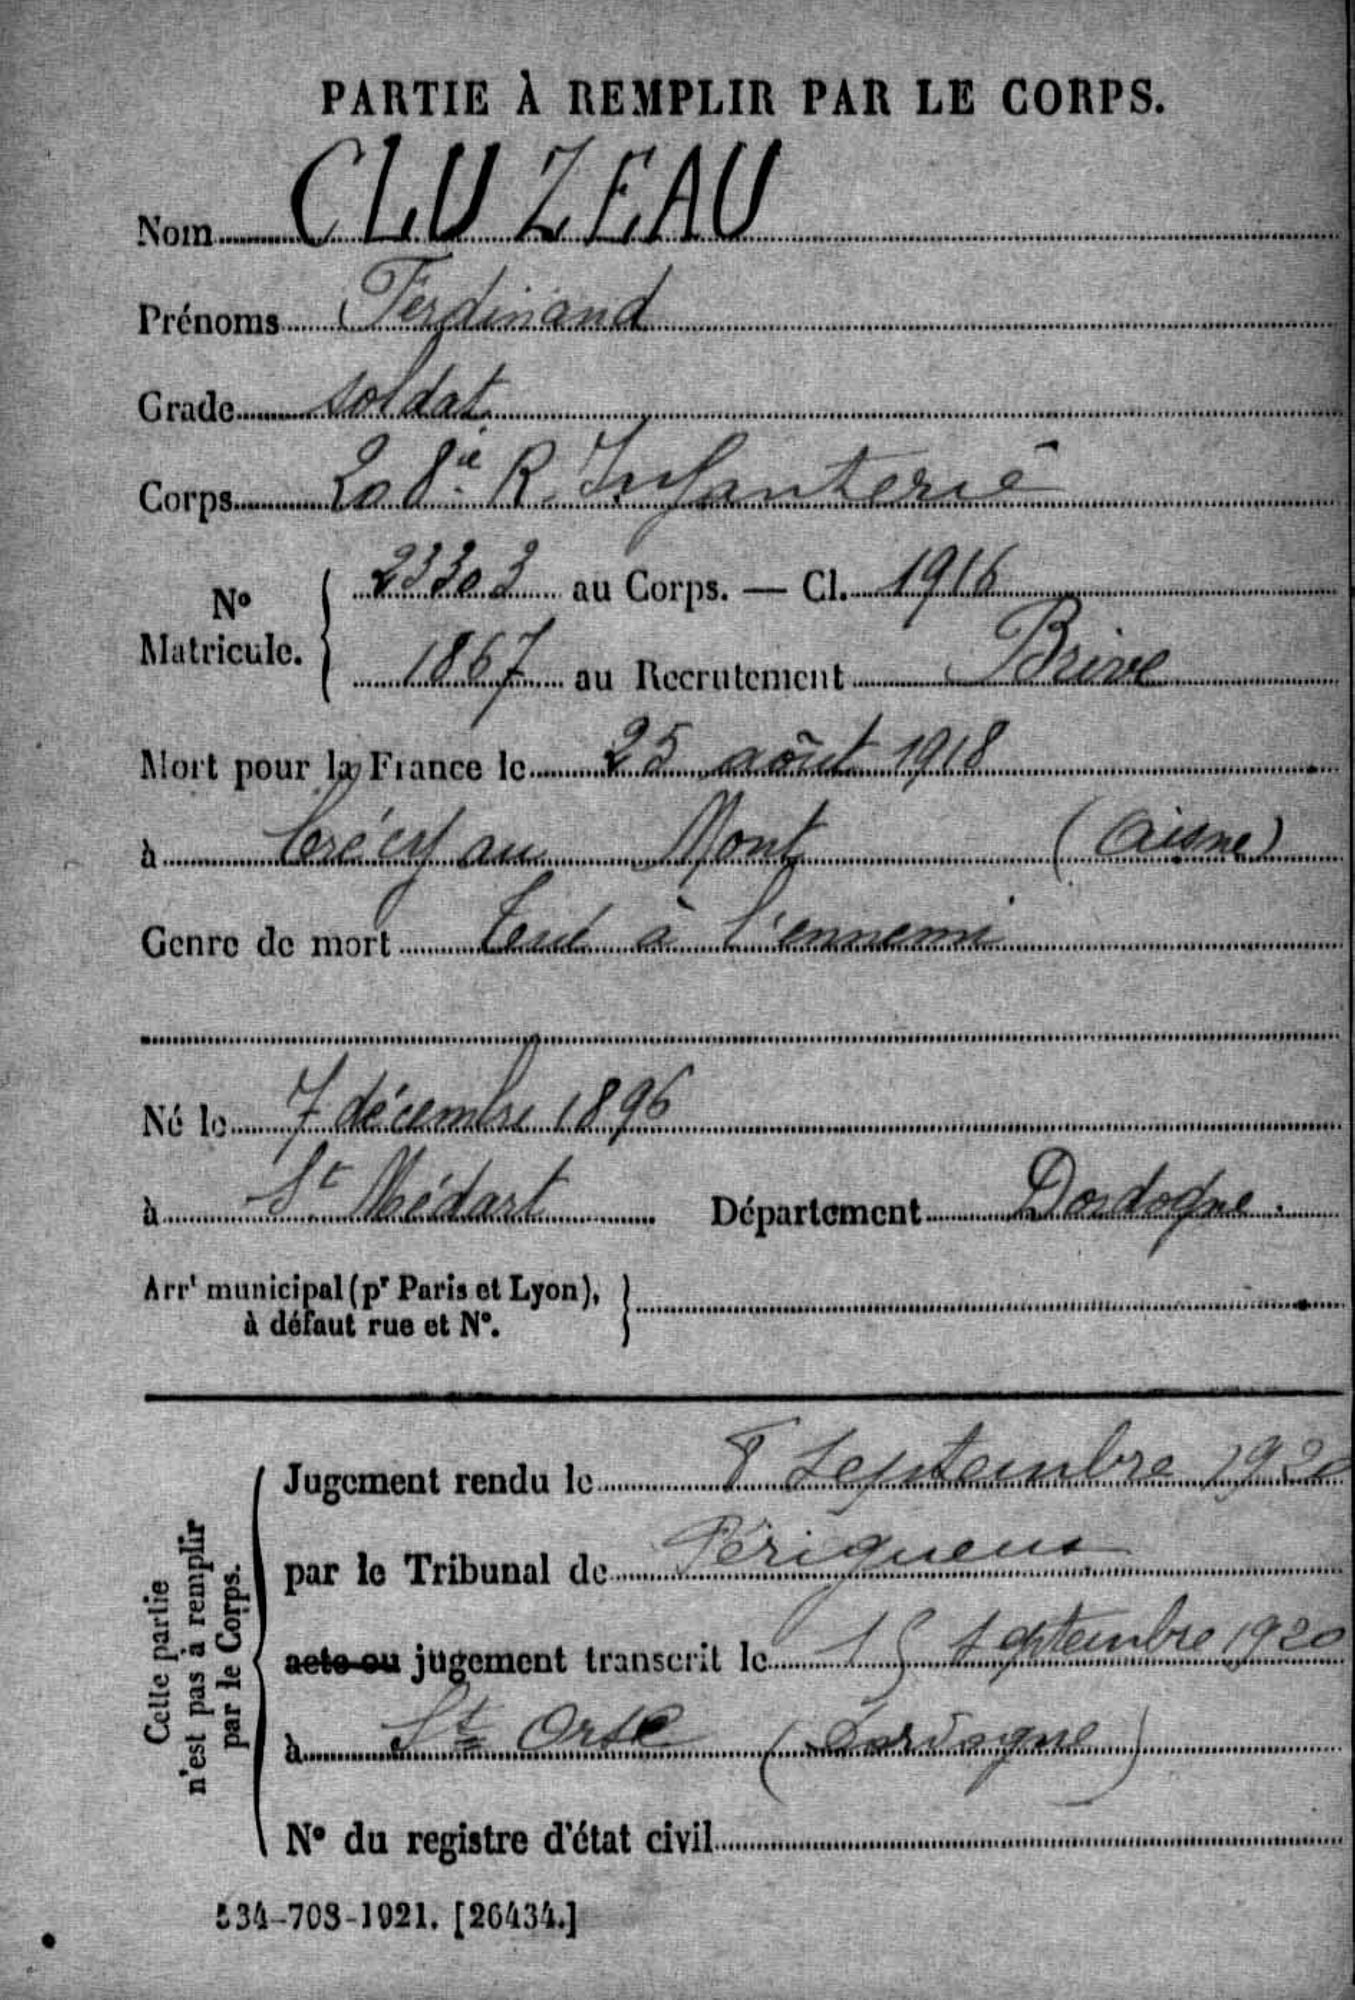 PARTIE À REMPLIR PAR LE CORPS.
Nom CLUZEAU
Prénoms Ferdinand
Grade soldat
Corps 208ie R. Infanterie
No Matricule. { 23303 au Corps. — Cl. 1916
1867 au Recrutement Brive
Mort pour la France le 25 août 1918
à Crécy au Mont (Aisne)
Genre de mort tué à l'ennemi
Né le 7 décembre 1896
à St Médart Département Dordogne.
Arrt municipal (pr Paris et Lyon),
à défaut rue et No.
Cette partie
n'est pas à remplir
par le Corps.
Jugement rendu le 8 Septembre 1920
par le Tribunal de Périgueux
acte ou jugement transcrit le 15 septembre 1920
à Ste Orse (Dordogne)
No du registre d'état civil
534-708-1921. [26434.]